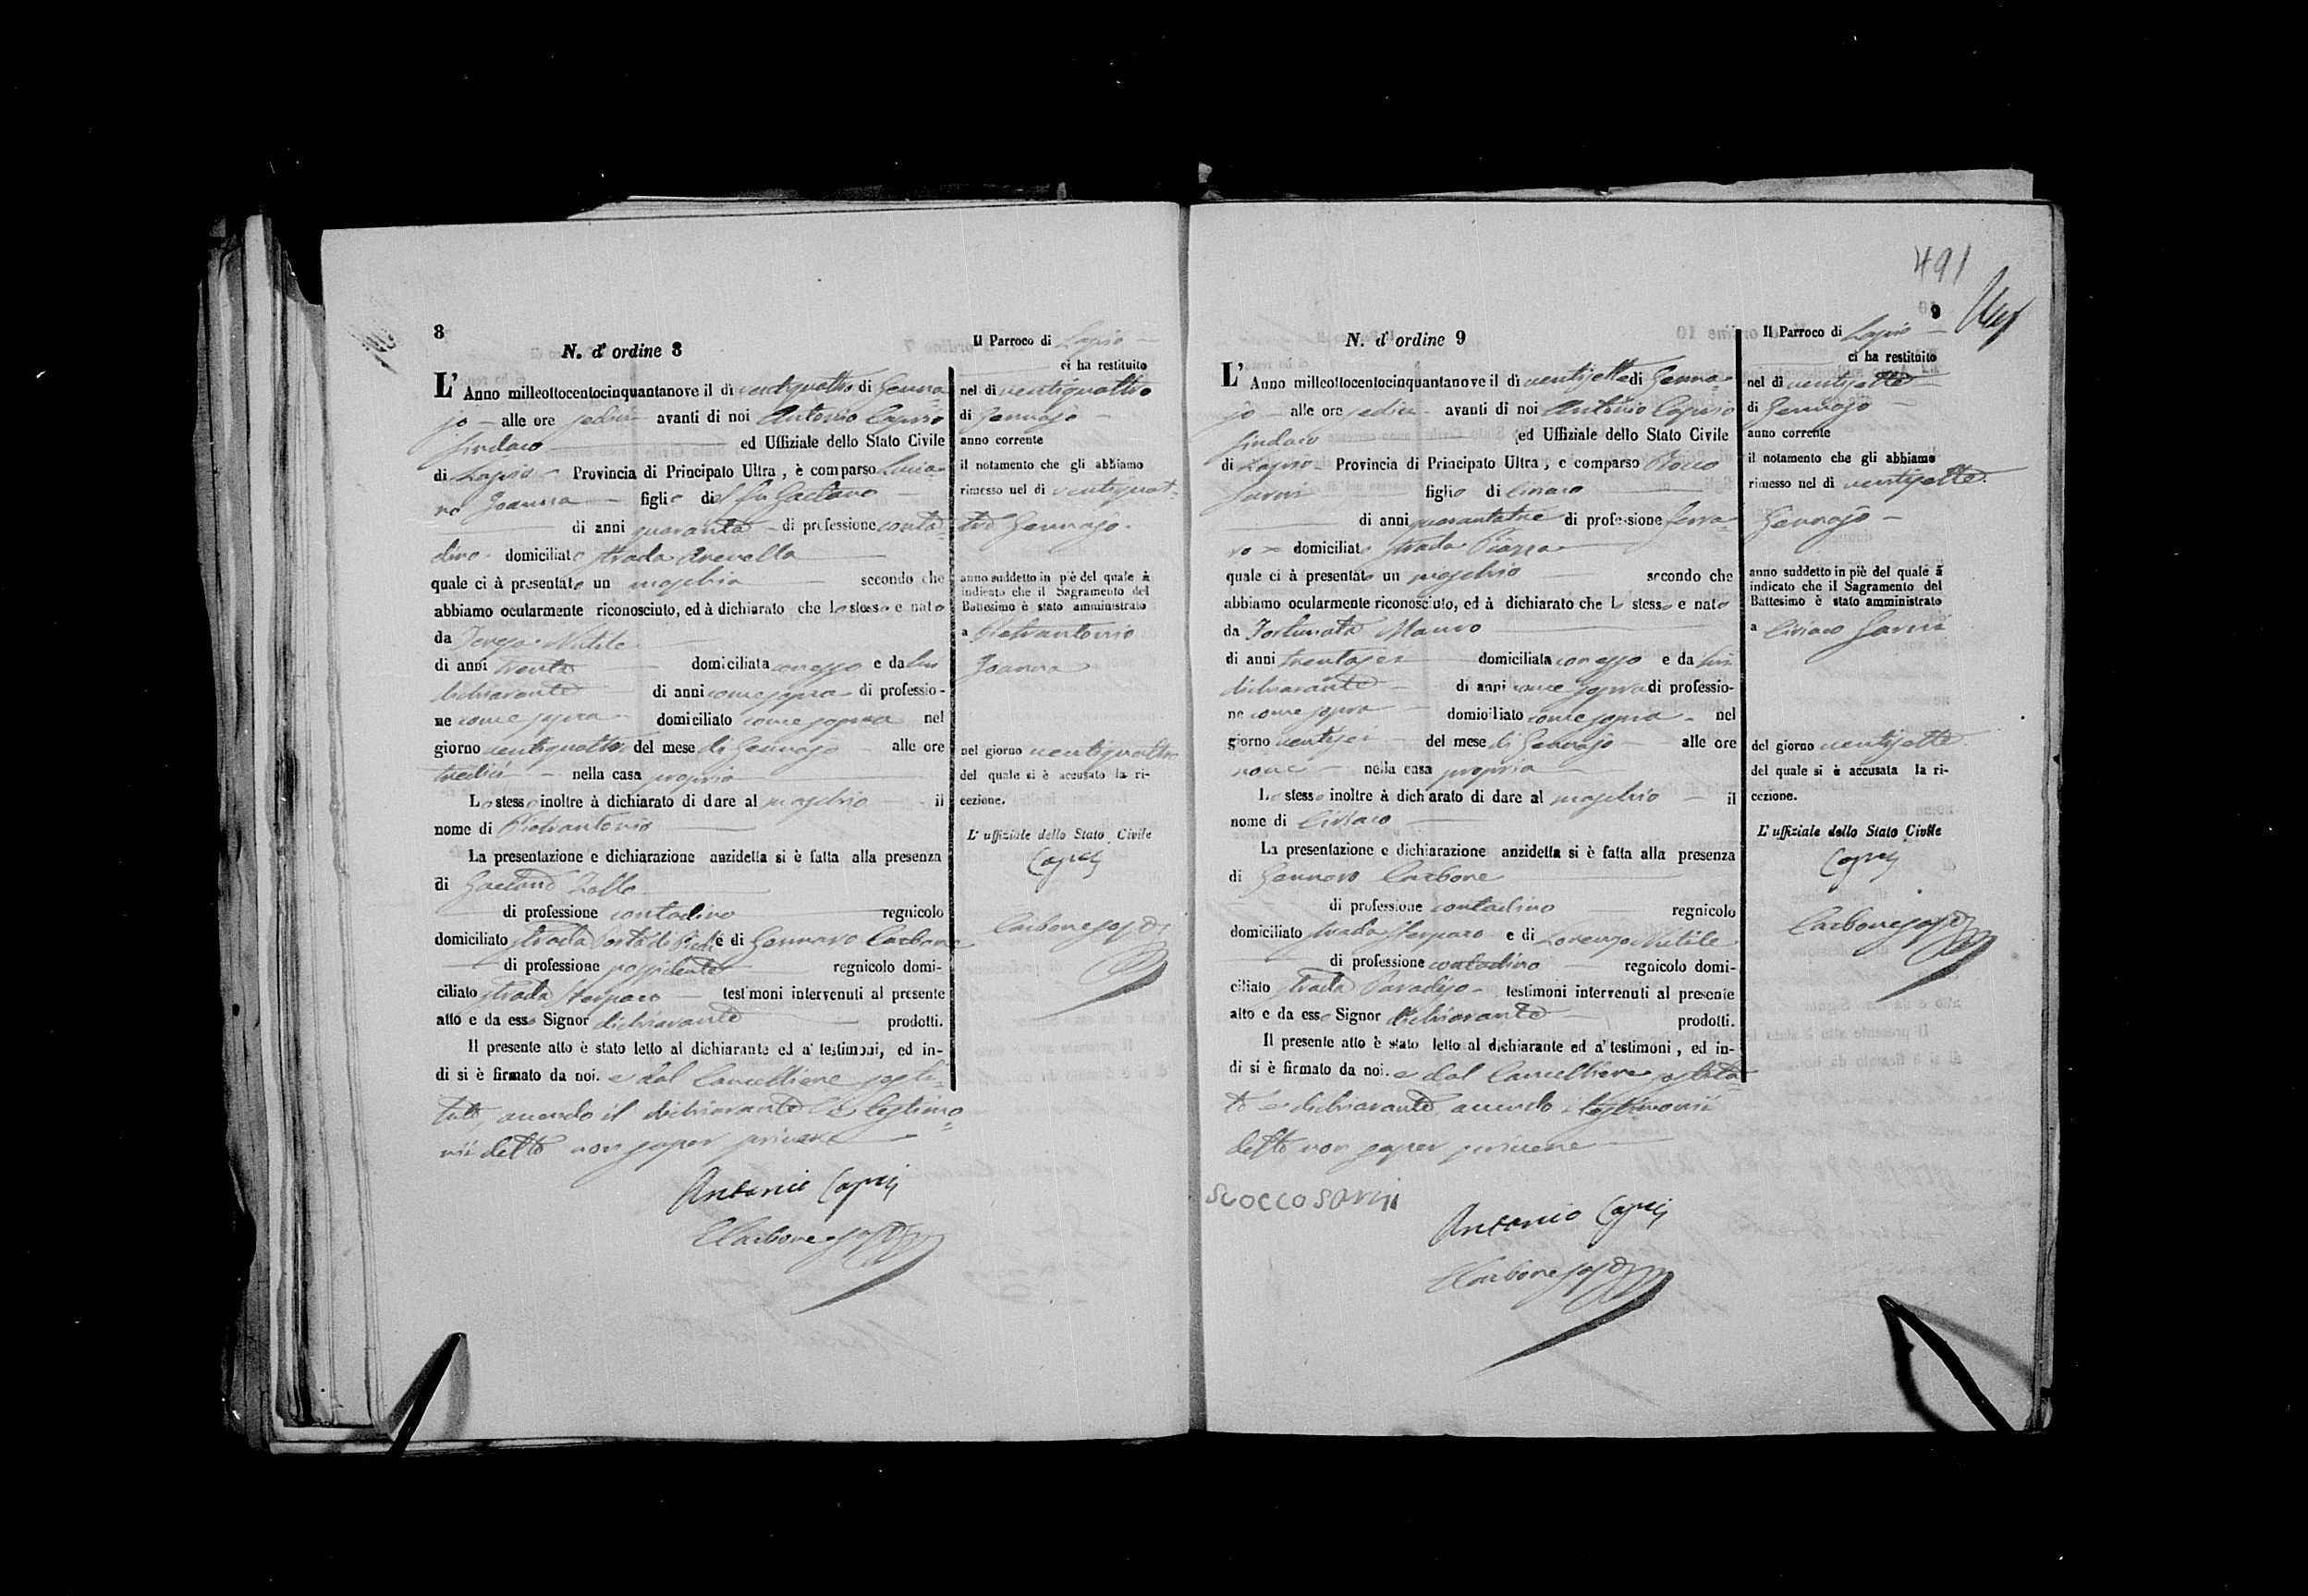 8
N. d' ordine 8
L' Anno milleottocentocinquantanove il dì ventiquattro di Genna=
jo — alle ore sedici avanti di noi Antonio Caprio
Sindaco ed Uffiziale dello Stato Civile
di Lapio Provincia di Principato Ultra, è comparso Lucia=
no Joanna figlio del fu Gaetano
di anni quaranta di professione conta=
dino domiciliato strada
quale ci à presentato un maschio secondo che
abbiamo ocularmente riconosciuto, ed à dichiarato che lo stesso e nato
da Teresa Nutile
di anni trenta domiciliata con esso e da lui
dichiarante di anni come sopra di professio-
ne come sopra domiciliato come sopra nel
giorno ventiquattro del mese di Gennajo alle ore
tredici nella casa propria
Lo stesso inoltre à dichiarato di dare al maschio il
nome di Pietrantonio
La presentazione e dichiarazione anzidetta si è fatta alla presenza
di Gaetano Zollo
di professione contadino regnicolo
domiciliato strada Porta di e di Gennaro Carbone
di professione possidente regnicolo domi-
ciliato strada testimoni intervenuti al presente
atto e da esso Signor dichiarante prodotti.
Il presente atto è stato letto al dichiarante ed a' testimoni, ed in-
di si è firmato da noi. e dal Cancelliere sosti=
tuto, avendo il dichiarante e testimo=
nii detto non saper scrivere
Antonio Caprio
Carbone sosto
Il Parroco di Lapio
ci ha restituito
nel dì ventiquattro
di Gennajo
anno corrente
il notamento che gli abbiamo
rimesso nel dì ventiquat=
tro Gennajo
anno suddetto in piè del quale à
indicato che il Sagramento del
Battesimo è stato amministrato
a Pietrantonio
Joanna
nel giorno ventiquattro
del quale si è accusato la ri-
cezione.
L' uffiziale dello Stato Civile
Caprio
Carbone sosto
491
9
N. d' ordine 9
L' Anno milleottocentocinquantanove il dì ventisette di Genna=
jo — alle ore sedici avanti di noi Antonio Caprio
Sindaco ed Uffiziale dello Stato Civile
di Lapio Provincia di Principato Ultra, e comparso Rocco
Sarni figlio di Ciriaco
di anni quarantatrè di professione ferra=
ro domiciliato strada Piazza
quale ci à presentato un maschio secondo che
abbiamo ocularmente riconosciuto, ed à dichiarato che lo stesso e nato
da Fortunata Mauro
di anni trentasei domiciliata con esso e da lui
dichiarante di anni come sopra di professio-
ne come sopra domiciliato come sopra nel
giorno ventisei del mese di Gennajo alle ore
nove nella casa propria
Lo stesso inoltre à dichiarato di dare al maschio il
nome di Ciriaco
La presentazione e dichiarazione anzidetta si è fatta alla presenza
di Gennaro Carbone
di professione contadino regnicolo
domiciliato strada e di Lorenzo Nutile
di professione contadino regnicolo domi-
ciliato strada Paradiso testimoni intervenuti al presente
atto e da esso Signor dichiarante prodotti.
Il presente atto è stato letto al dichiarante ed a' testimoni, ed in-
di si è firmato da noi. e dal Cancelliere sostitu=
to e dichiarante, avendo i testimonii
detto non saper scrivere
Antonio Caprio
Carbone sosto
Il Parroco di Lapio
ci ha restituito
nel dì ventisette
di Gennajo
anno corrente
il notamento che gli abbiamo
rimesso nel dì ventisette
Gennajo
anno suddetto in piè del quale à
indicato che il Sagramento del
Battesimo è stato amministrato
a Ciriaco Sarni
del giorno ventisette
del quale si è accusata la ri-
cezione.
L' uffiziale dello Stato Civile
Caprio
Carbone sosto